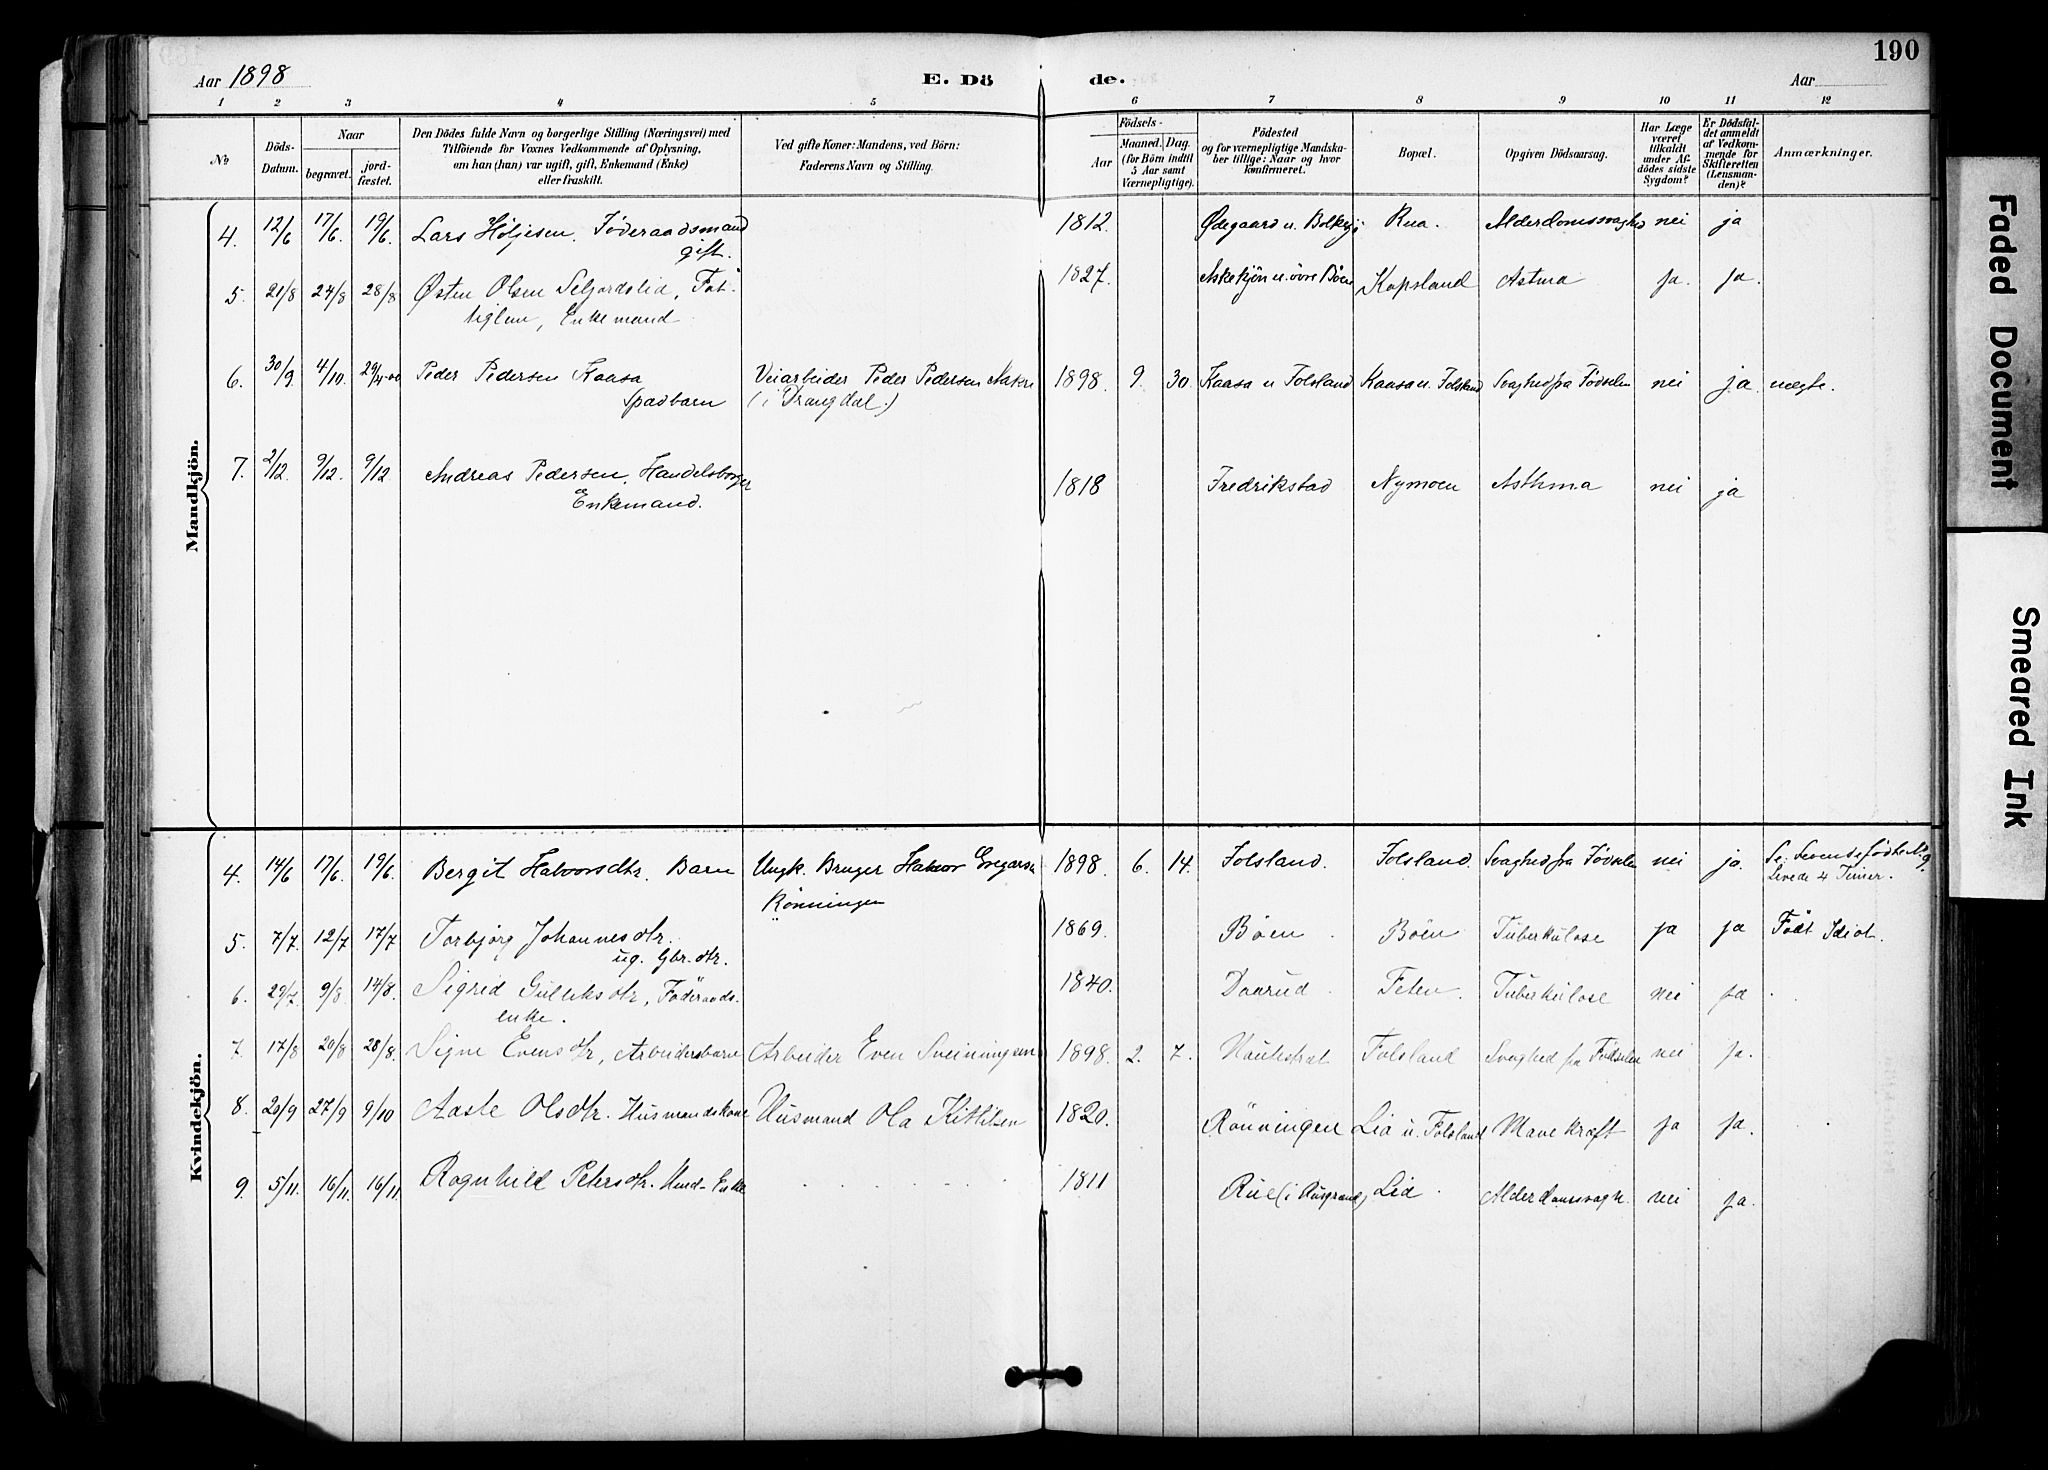 190
Aar 1898
E. Dö
de.
Aar
1 2 3 4 5 6 7 8 9 10 11 12
No
Döds-
Datum.
Naar
begravet.
jord-
fæstet.
Den Dödes fulde Navn og borgerlige Stilling (Næringsvei) med
Tilföiende for Voxnes Vedkommende af Oplysning,
om han (hun) var ugift, gift, Enkemand (Enke)
eller fraskilt.
Ved gifte Koner: Mandens, ved Börn:
Faderens Navn og Stilling.
Födsels-
Aar
Maaned. Dag.
(for Börn indtil
5 Aar samt
Værnepligtige).
Födested
og for værnepligtige Mandska-
ber tillige: Naar og hvor
konfirmeret.
Bopæl.
Opgiven Dödsaarsag.
Har Læge
været
tilkaldt
under Af-
dödes sidste
Sygdom?
Er Dödsfal-
det anmeldt
af Vedkom-
mende for
Skifteretten
(Lensman-
den)?
Anmærkninger.
Mandkjön.
4. 12/6 17/6. 19/6. Lars Höljesen. Föderaadsmand 1812. Ødegaard u. Bolkesjö Rua. Alderdomssvaghed nei ja
gift.
5. 21/8 24/8 28/8 Østen Olsen Seljordslid, Fat- 1827. u. övre Böen Kopsland Astma ja. ja.
tiglem, Enkemand
6. 30/9 4/10. Peder Pedersen Kaasa Veiarbeider Peder Pedersen 1898 9. 30. Kaasa u Folsland Kaasa u. Folsland Svaghed fra Födselen nei ja. uægte.
Spædbarn (i Drangdal.)
7. 2/12. 9/12. 9/12 Andreas Pedersen, Handelsborger 1818 Fredrikstad Nymoen Asthma nei ja
Enkemand.
Kvindekjön.
4. 14/6 17/6. 19/6. Bergit Halvorsdtr. Barn Ungk. Bruger Halvor Gregarsen 1898 6. 14. Folsland. Folsland. Svaghed fra Födselen nei ja. Se: Levendefödte No 9
Rönningen Levede 4 Timer.
5. 7/7. 12/7 17/7 Torbjörg Johannesdtr. 1869. Böen Böen Tuberkulose ja ja Födt Idiot.
ug. Gbr. dtr.
6. 29/7. 9/8 14/8. Sigrid Gulleksdtr, Föderaads- 1840. Daarud Feten. Tuberkulose nei ja
enke.
7. 17/8 20/8 28/8. Signe Evensdtr, Arbeidersbarn Arbeider Even Sveinungsen 1898. 2. 7. Folsland Svaghed fra Födselen nei ja.
8. 20/9 27/9 9/10 Aaste Olsdtr. Husmandskone Husmand Ola Kittilsen 1820. Rönningen Lid u. Folsland Mavekræft ja ja.
9. 5/11. 16/11. 16/11 Ragnhild Petersdtr. Husmd-Enke 1811 Rue (i Lid. Alderdomssvagh. nei ja.
Faded Document
Smeared Ink